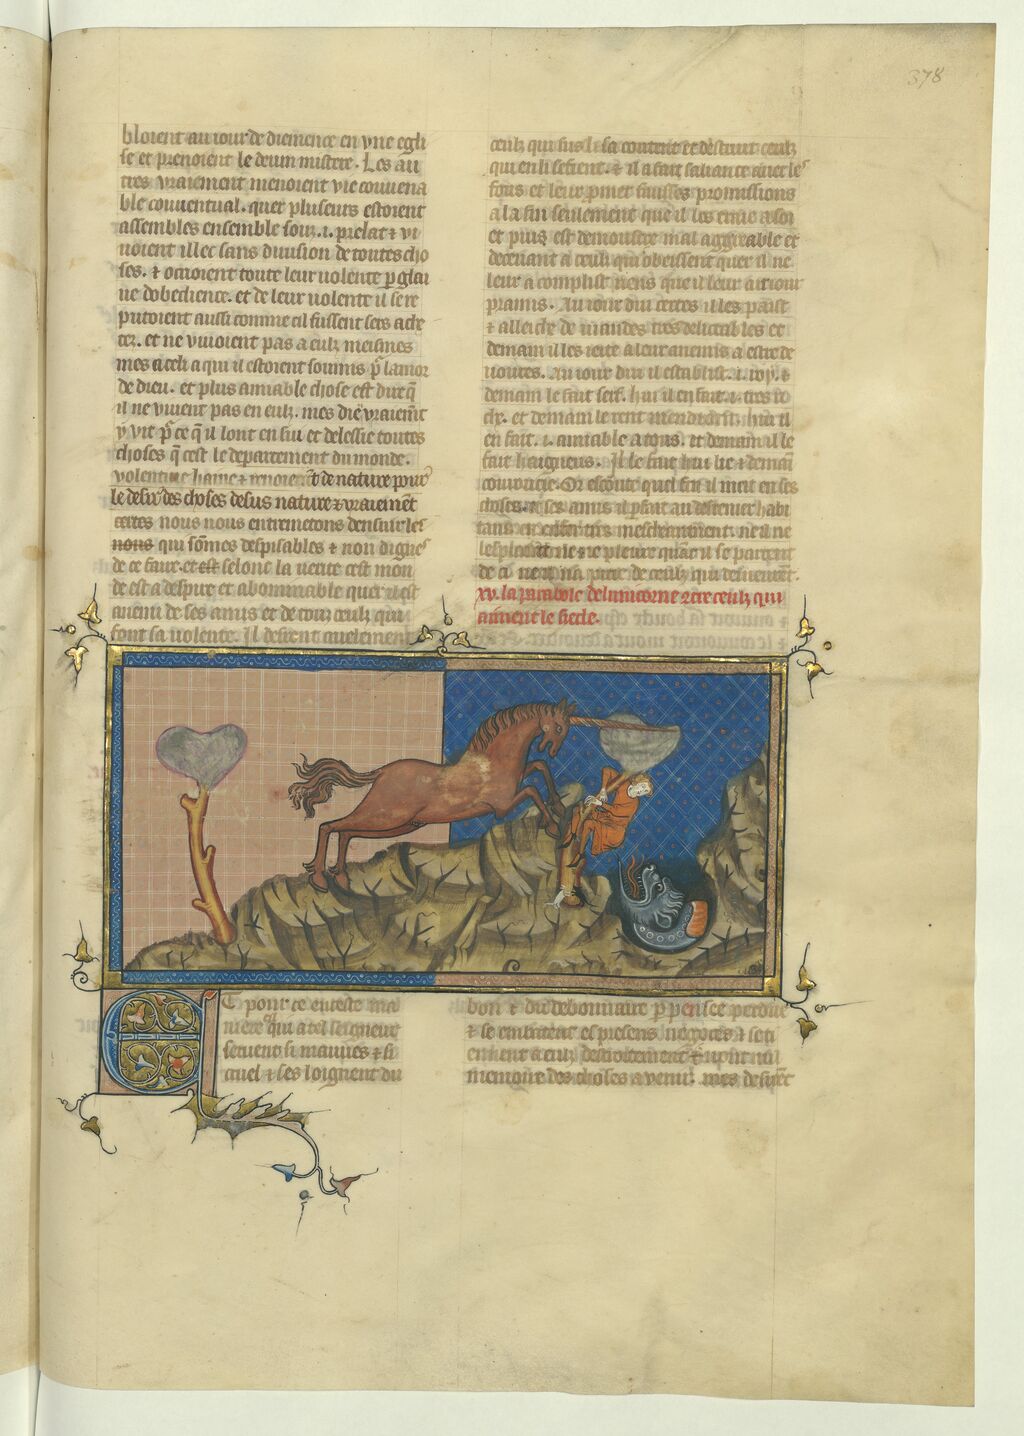 378
bloient au iour de diemence en vne egli
se et prenoient le deuin mistere. Les au
tres vraiement menoient vie conuena
ble conuentual. quer pluseurs estoient
assembles ensemble souz .i. prelat ⁊ vi
uoient illec sans diuision de toutes cho
ses. ⁊ ocioient toute leur volente p glai
ue dobedience. et de leur volente il se re
putoient aussi comme cil fussent sers ache
tez. et ne viuoient pas a eulz meismes
mes a celi a qui il estoient soumis pͬ lamor
de dieu. et plus amiable chose est dire q̄
il ne viuent pas en eulz. mes dieu vraiemt̄
y vit pͬ ce q̄ il lont ensui et delessie toutes
choses q̄ cest le departement du monde.
volentiue haine ⁊ renoiemt̄ de nature pour
le desir des choses desus nature ⁊ vraiement
certes nous nous entremetons densuir les
nous qui sōmes despisables ⁊ non dignes
de ce faire. et est selonc la verite cest mon
de est a despire et abominable quer il est
auenu de ses amis et de touz ceulz qui
font sa volente. Il destent cruelement
ceulz qui sus li sa confient et destruit ceulz
qui en li se fient. ⁊ il a fait saliance auec les
fous et leur pmet fausses promissions
a la fin seulement que il les traie a soi
et puis est demoustre mal aggreable et
deceuant a ceulz qui obeissent quer il ne
leur acomplist riens que il leur ait iour
pramis. Au iour dui certes il les paist
⁊ alleiche de viandes tres delitables et
demain il les iete a leur anemis a estre de
uoures. Au iour dui il establist .i. roy. ⁊
demain le fait serf. hui il en fait .i. tres ri
che. et demain le rent mendiant. hui il
en fait .i. amiable a tous. et demain il le
fait haigneus. Il le fait hui lie ⁊ demain
couroucie. Or escoute quil fait il met en ses
choses. ⁊ ses amis il plant au derrenier habi
tans en enfer tres meschantment. ne il ne
les plaint ne ne pleure quāt il se partent
de ci ne il na pitie de ceulz qui demeurent.
xv. la parabole de lunicorne ⁊tre ceulz qui
aiment le siecle.
Et pour ce en ceste ma
niere qui a tel seigneur
seruent si mauues ⁊ si
cruel ⁊ ses loignent du
bon ⁊ du debonnaire p pensee perdue
⁊ se embatent es presens negoces ⁊ seti
ennent a eulz destroitement ⁊ nont nu
memoire des choses a venir. mes desirēt